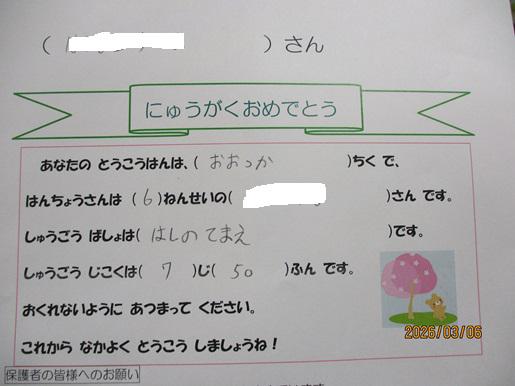 （　　　　　）さん
にゅうがくおめでとう
あなたの とうこうはんは、（ おおつか ）ちく で、
はんちょうさんは （6）ねんせいの（　　　　　）さん です。
しゅうごう ばしょは（ はしの てまえ ）です。
しゅうごう じこくは（ 7 ）じ（ 50 ）ふん です。
おくれないように あつまって ください。
これから なかよく とうこう しましょうね！
2026/03/06
保護者の皆様へのお願い